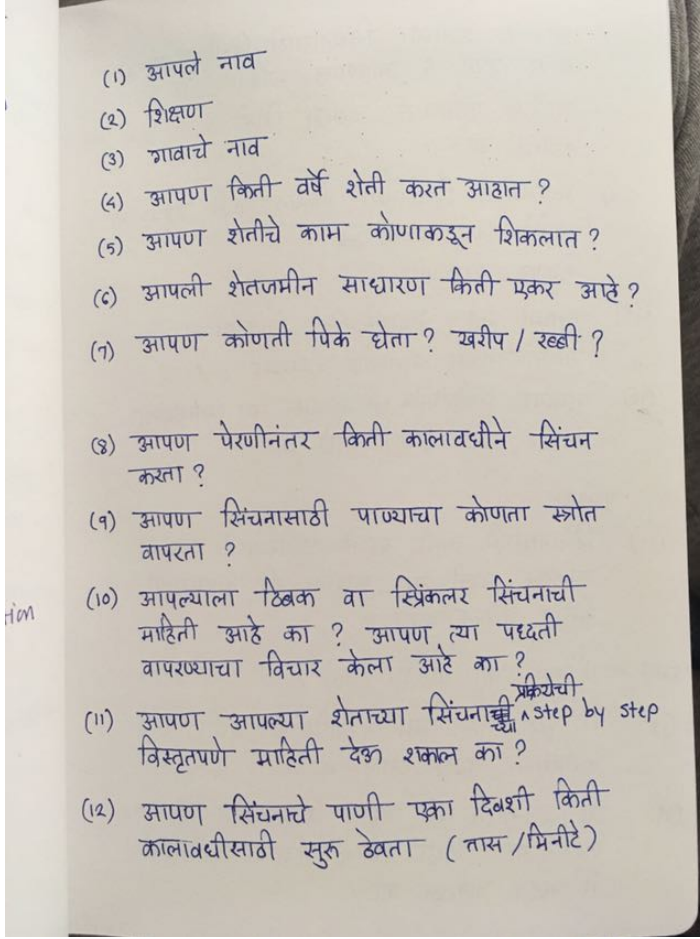 (1) आपले नाव
(2) शिक्षण
(3) गावाचे नाव
(4) आपण किती वर्षे शेती करत आहात ?
(5) आपण शेतीचे काम कोणाकडून शिकलात ?
(6) आपली शेतजमीन साधारण किती एकर आहे ?
(7) आपण कोणती पिके घेता ? खरीप / रब्बी ?
(8) आपण पेरणीनंतर किती कालावधीने सिंचन
करता ?
(९) आपण सिंचनासाठी पाण्याचा कोणता स्त्रोत
वापरता ?
(10) आपल्याला ठिबक वा स्प्रिंकलर सिंचनाची
tion
माहिती आहे का ? आपण त्या पध्दती
वापरण्याचा विचार केला आहे का ?
(11) आपण आपल्या शेताच्या सिंचनाच्या प्रक्रियेची step by step
विस्तृतपणे माहिती देऊ शकाल का ?
(12) आपण सिंचनाचे पाणी एका दिवशी किती
कालावधीसाठी सुरू ठेवता ( तास / मिनीटे )